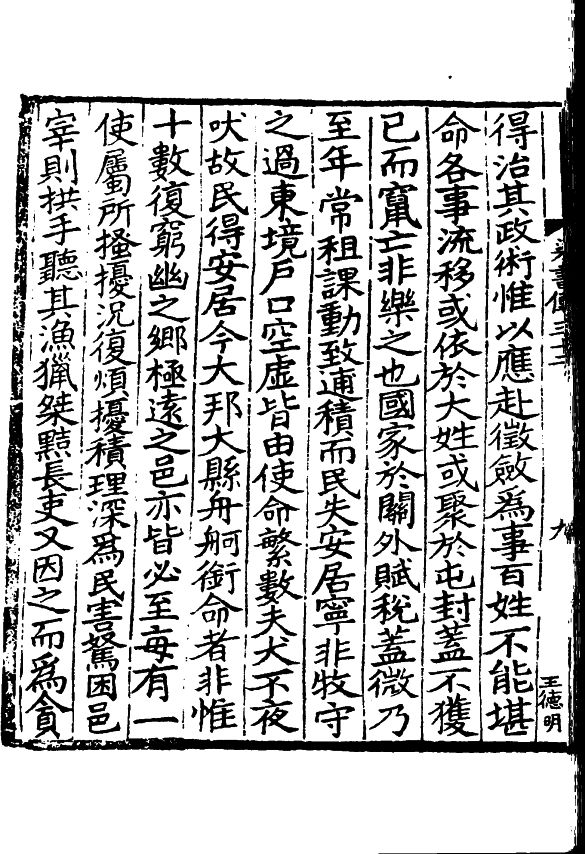 書傳三十二
九
王德明
得治其政術惟以應赴徵斂爲事百姓不能堪
命各事流移或依於大姓或聚於屯封蓋不獲
已而竄亡非樂之也國家於關外賦稅蓋微乃
至年常租課動致逋積而民失安居寧非牧守
之過東境戶口空虛皆由使命繁數夫犬不夜
吠故民得安居今大邦大縣舟舸銜命者非惟
十數復窮幽之鄉極遠之邑亦皆必至每有一
使屬所搔擾況復煩擾積理深爲民害駑困邑
宰則拱手聽其漁獵桀黠長吏又因之而爲貪